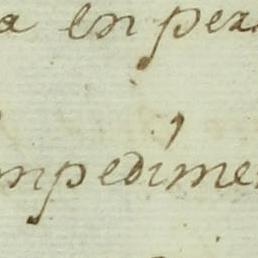 a en pez
mpedíme